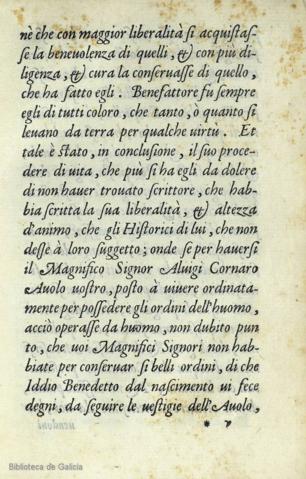 nè che con maggior liberalità si acquistas-
se la beneuolenza di quelli, & con più di-
ligenza, & cura la conseruasse di quello,
che ha fatto egli. Benefattore fù sempre
egli di tutti coloro, che tanto, ò quanto si
leuano da terra per qualche uirtù. Et
tale è stato, in conclusione, il suo proce-
dere di uita, che più si ha egli da dolere
di non hauer trouato scrittore, che hab-
bia scritta la sua liberalità, & altezza
d'animo, che gli Historici di lui, che non
desse à loro suggetto; onde se per hauersi
il Magnifico Signor Aluigi Cornaro
Auolo uostro, posto à uiuere ordinata-
mente per possedere gli ordini dell'huomo,
acciò operasse da huomo, non dubito pun
to, che uoi Magnifici Signori non hab-
biate per conseruar si belli ordini, di che
Iddio Benedetto dal nascimento ui fece
degni, da seguire le uestigie dell'Auolo,
* v
Biblioteca de Galicia